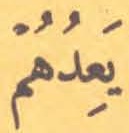 يَعِدُهُمْ